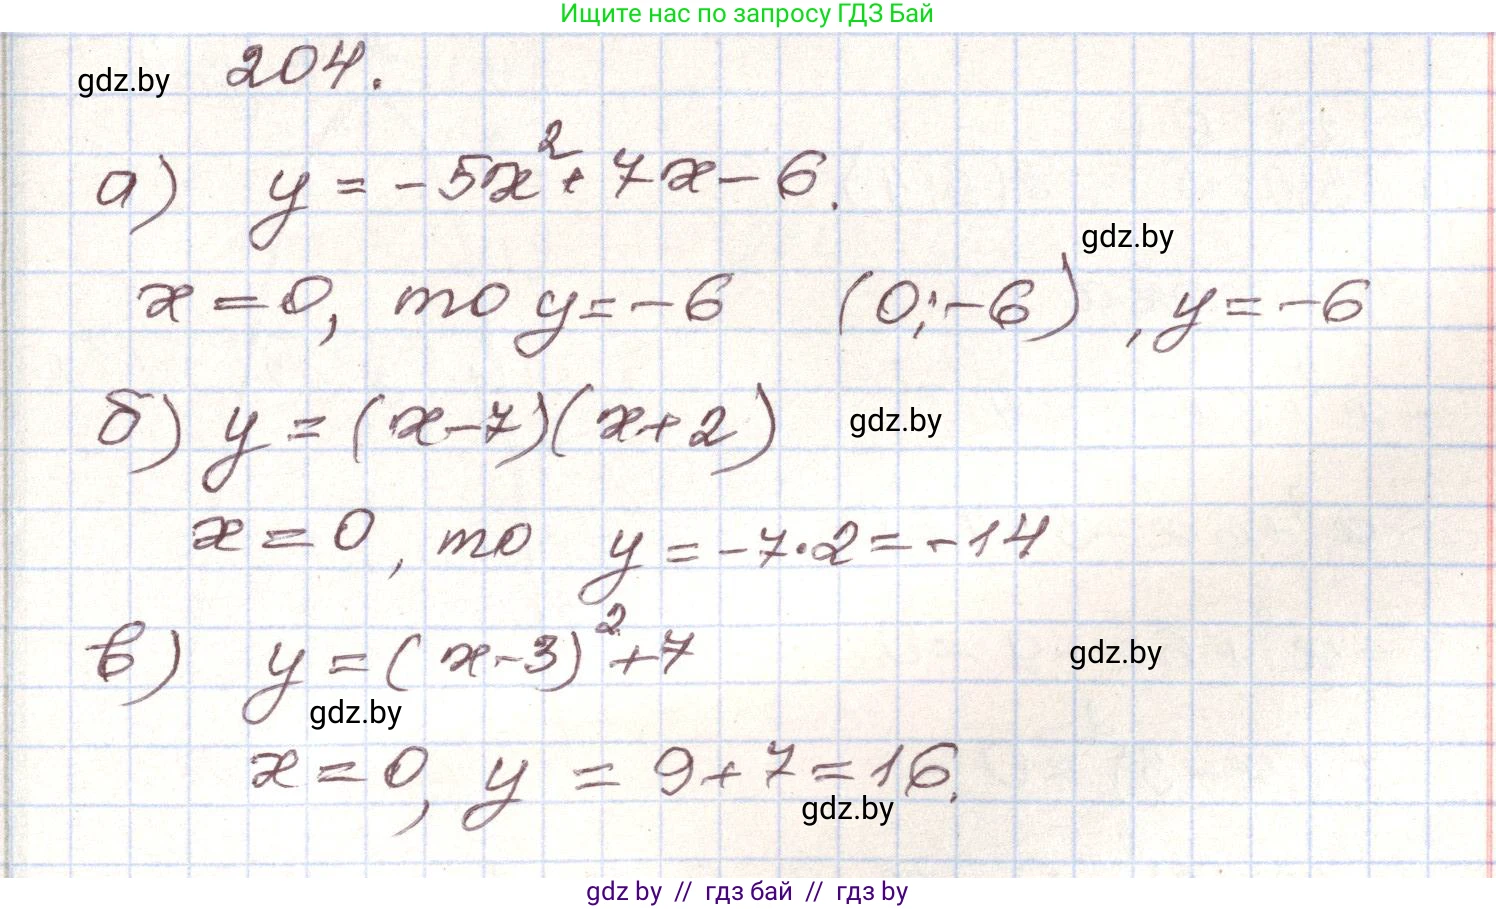 Ищите нас по запросу ГДЗ Бай
gdz.by 204.
а) y = -5x² + 7x - 6.
gdz.by
x = 0, то y = -6 (0; -6), y = -6
б) y = (x-7)(x+2) gdz.by
x = 0, то y = -7·2 = -14
в) y = (x-3)² + 7 gdz.by
gdz.by
x = 0, y = 9 + 7 = 16.
gdz.by
gdz by // гдз бай // гдз by